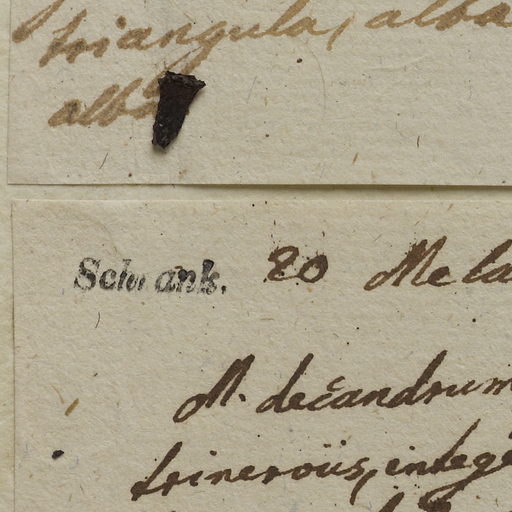 triangula, alba
alba
Schrank. 20 Mela
M. decandrum
trinervüs, integ